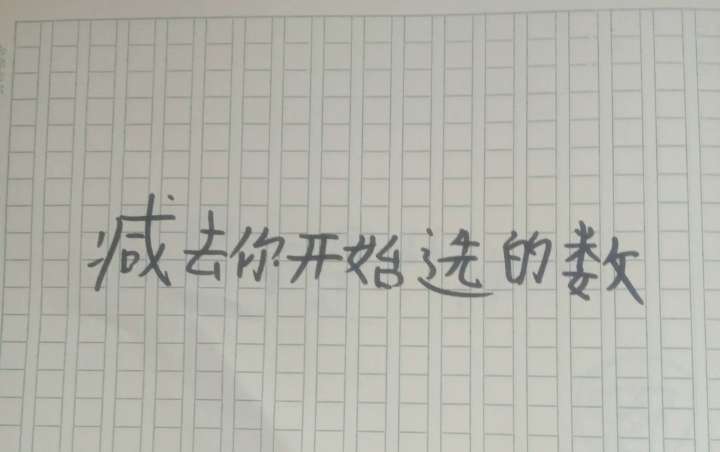 减去你开始选的数